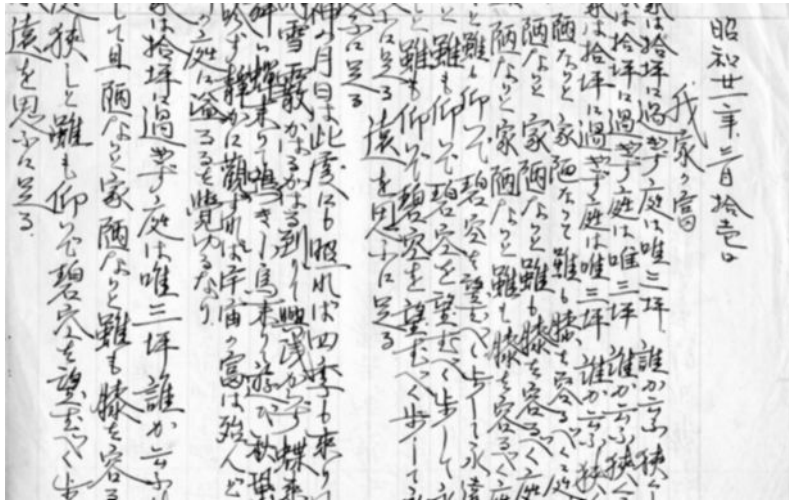 昭和廿一年二月拾壱日
我家の富
家は拾坪に過ぎず庭は唯三坪 誰か云ふ狭く
家は拾坪に過ぎず庭は唯三坪 誰か云ふ狭く
家は拾坪に過ぎず庭は唯三坪 誰か云ふ狭
陋なりと 家陋なりと雖も膝を容るべく庭
陋なりと 家陋なりと雖も膝を容るべく庭
陋なりと家陋なりと雖も膝を容るべく庭
と雖も仰いで碧空を望むべく歩して永遠
と雖も仰いで碧空を望むべく歩して永
と雖も仰いで碧空を望むべく歩して
ふに足る 遠を思ふに足る
ふに足る
神の月日は此處にも照れば四季も来りて
雪霰かはるがはる到りて興浅からず 蝶来
舞ひ蝉来りて鳴き鳥来りて遊び秋蛩
吟ず 静かに観ずれば宇宙の富は殆んど
の庭に溢るるを覚ゆるなり
は拾坪に過ぎず庭は唯三坪 誰か云ふ
して且陋なりと家陋なりと雖も膝を容る
狭しと雖も仰いで碧空を望むべく歩
遠を思ふに足る